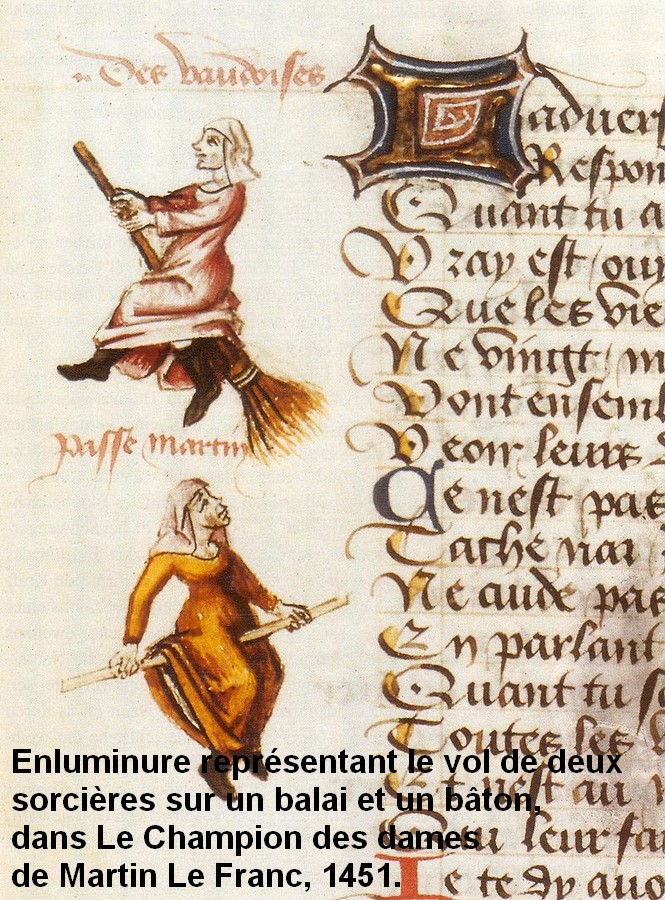 Des vaudoises
passe martin
Laduer
Respon
Quant tu a
Vray est ouy
Que les vie
Ne vingt m
Vont ensem
Veoir leurs
Ce nest pas
Tache
Ne cuide pas
En parlant
Quant tu
Toutes les
Et nest au
leur fa
Ie te dy auo
Enluminure représentant le vol de deux
sorcières sur un balai et un bâton,
dans Le Champion des dames
de Martin Le Franc, 1451.